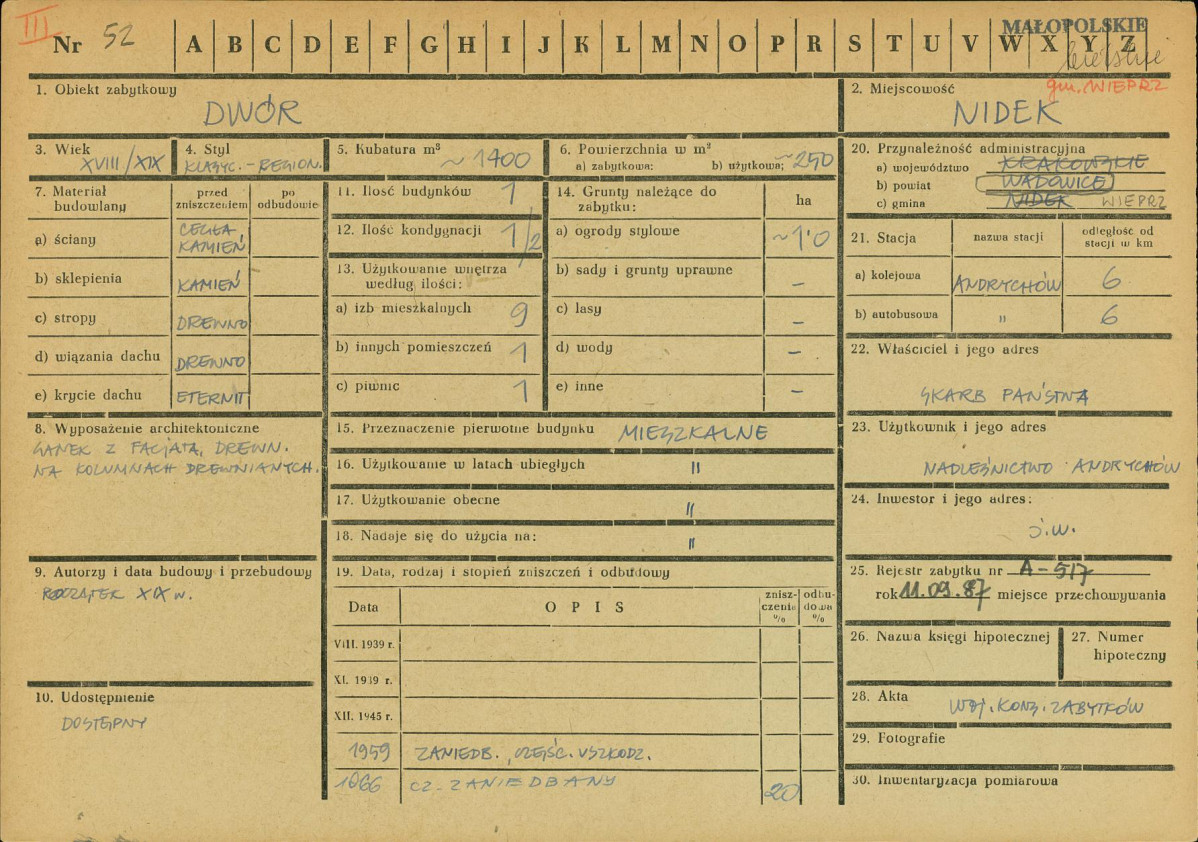 III
Nr 52
A B C D E F G H I J K L M N O P R S T U V W X Y Z
MAŁOPOLSKIE
gm. WIEPRZ
1. Obiekt zabytkowy
DWÓR
2. Miejscowość
NIDEK
3. Wiek
XVIII/XIX
4. Styl
KLASYC.-REGION.
5. Kubatura m³ ~1400
6. Powierzchnia w m²
a) zabytkowa: b) użytkowa: ~250
7. Materiał budowlany
przed zniszczeniem
po odbudowie
a) ściany CEGŁA KAMIEŃ
b) sklepienia KAMIEŃ
c) stropy DREWNO
d) wiązania dachu DREWNO
e) krycie dachu ETERNIT
8. Wyposażenie architektoniczne
GANEK Z FACJATĄ, DREWN.
NA KOLUMNACH DREWNIANYCH.
9. Autorzy i data budowy i przebudowy
POCZĄTEK XIX w.
10. Udostępnienie
DOSTĘPNY
11. Ilość budynków 1
12. Ilość kondygnacji 1/2
13. Użytkowanie wnętrza
według ilości:
a) izb mieszkalnych 9
b) innych pomieszczeń 1
c) piwnic 1
14. Grunty należące do
zabytku: ha
a) ogrody stylowe ~1'0
b) sady i grunty uprawne –
c) lasy –
d) wody –
e) inne –
15. Przeznaczenie pierwotne budynku MIESZKALNE
16. Użytkowanie w latach ubiegłych "
17. Użytkowanie obecne "
18. Nadaje się do użycia na: "
19. Data, rodzaj i stopień zniszczeń i odbudowy
Data OPIS zniszczenia % odbudowa %
VIII. 1939 r.
XI. 1939 r.
XII. 1945 r.
1959 ZANIEDB., CZĘŚC. USZKODZ.
1966 CZ. ZANIEDBANY 20
20. Przynależność administracyjna
a) województwo KRAKOWSKIE
b) powiat WADOWICE
c) gmina NIDEK WIEPRZ
21. Stacja nazwa stacji odległość od stacji w km
a) kolejowa ANDRYCHÓW 6
b) autobusowa " 6
22. Właściciel i jego adres
SKARB PAŃSTWA
23. Użytkownik i jego adres
NADLEŚNICTWO ANDRYCHÓW
24. Inwestor i jego adres:
j.w.
25. Rejestr zabytku nr A-517
rok 11.09.87 miejsce przechowywania
26. Nazwa księgi hipotecznej
27. Numer
hipoteczny
28. Akta WOJ. KONS. ZABYTKÓW
29. Fotografie
30. Inwentaryzacja pomiarowa